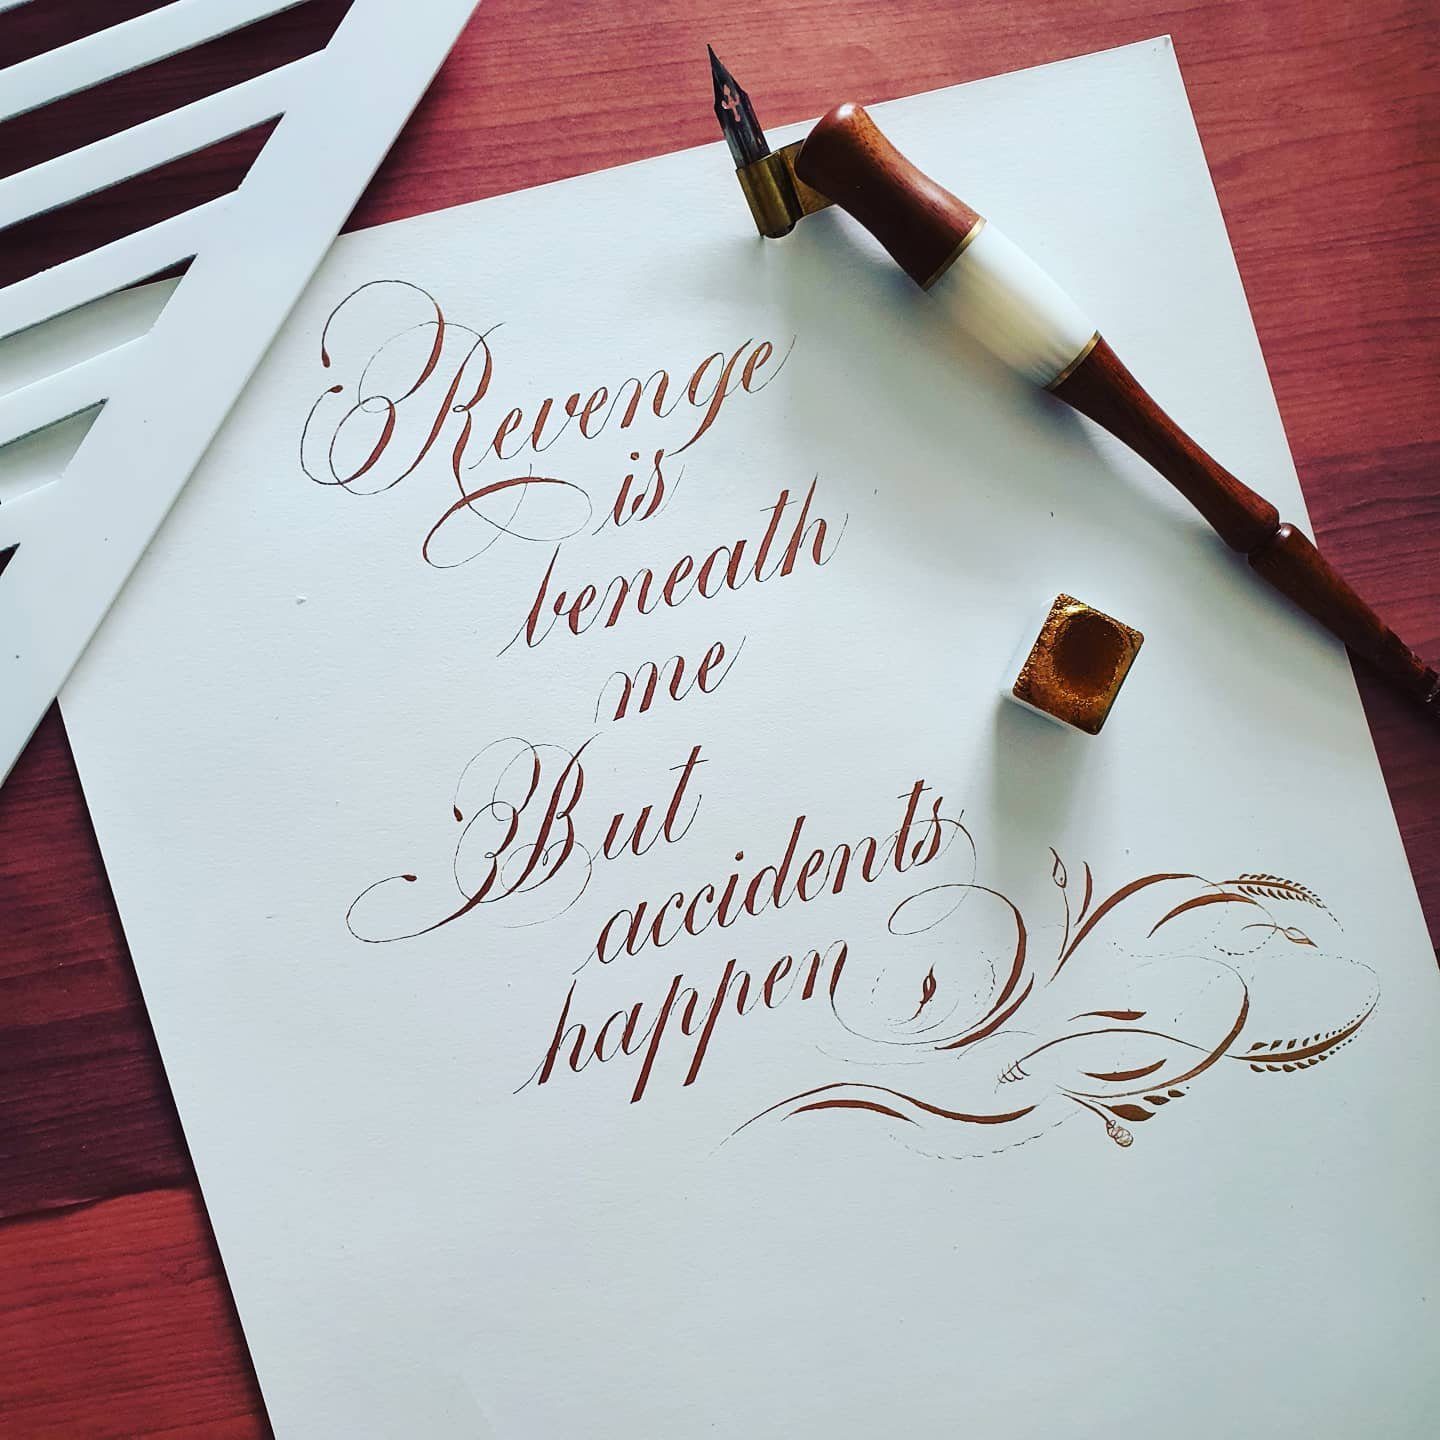 Revenge
is
beneath
me
But
accidents
happen